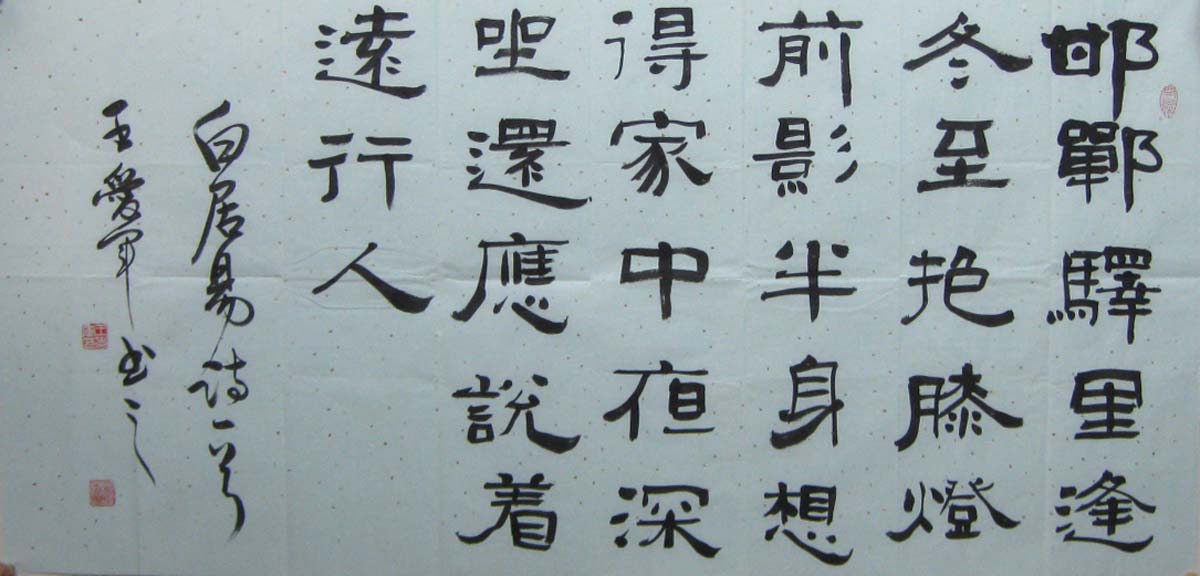 邯鄲驛里逢
冬至抱膝燈
前影半身想
得家中夜深
坐還應說着
遠行人
白居易詩一首
王愛軍书之